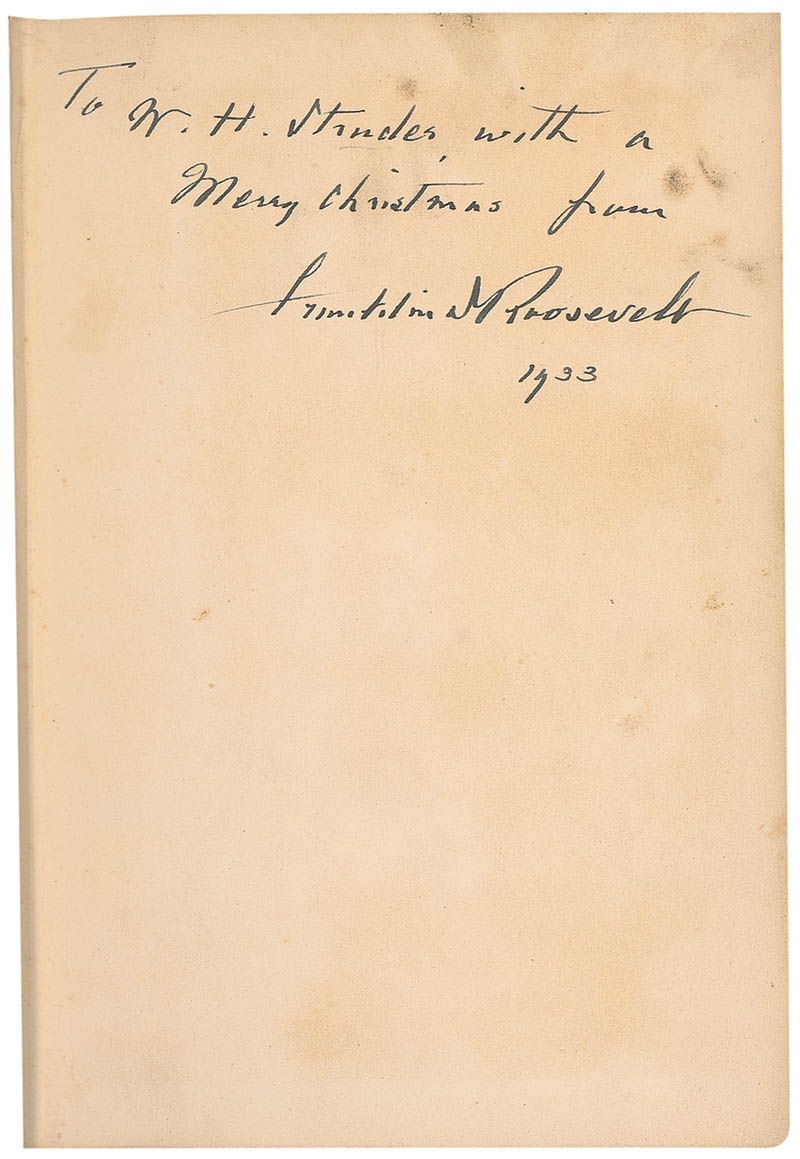 To
W. H. Studer, with a
Merry Christmas from
Franklin D Roosevelt
1933